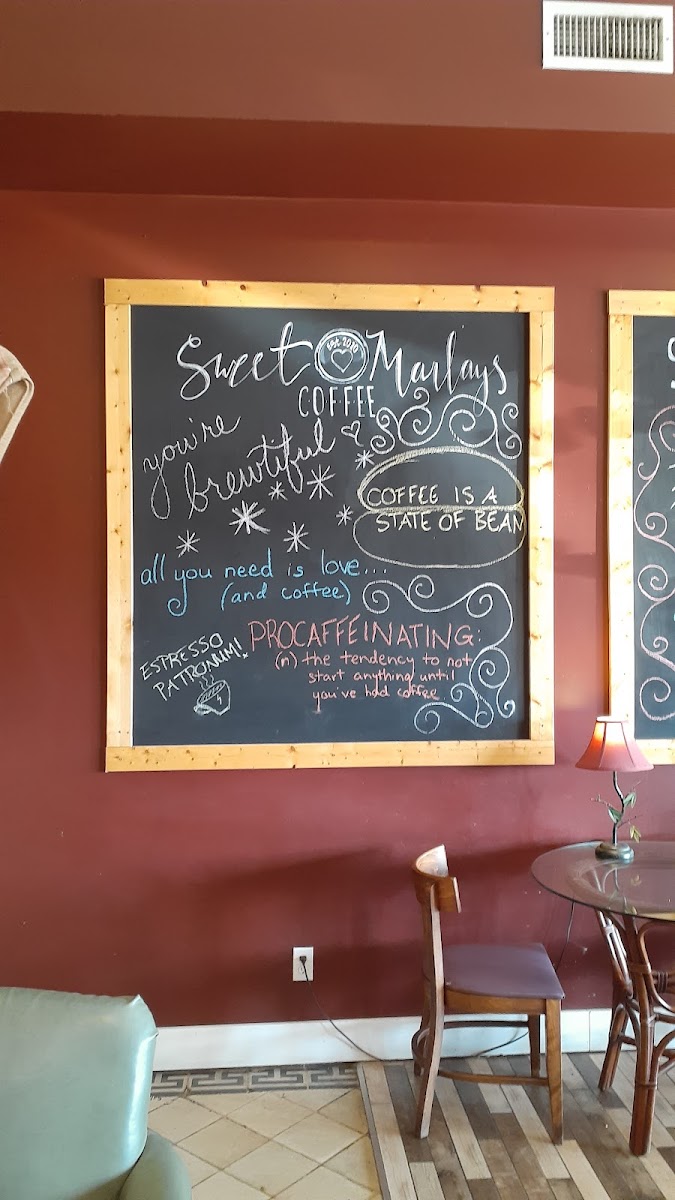 Sweet Marlays
Est. 2020
COFFEE
you're
brewtiful
COFFEE IS A
STATE OF BEAN
all you need is love...
(and coffee)
PROCAFFEINATING:
(n) the tendency to not
start anything until
you've had coffee.
ESPRESSO
PATRONUM!